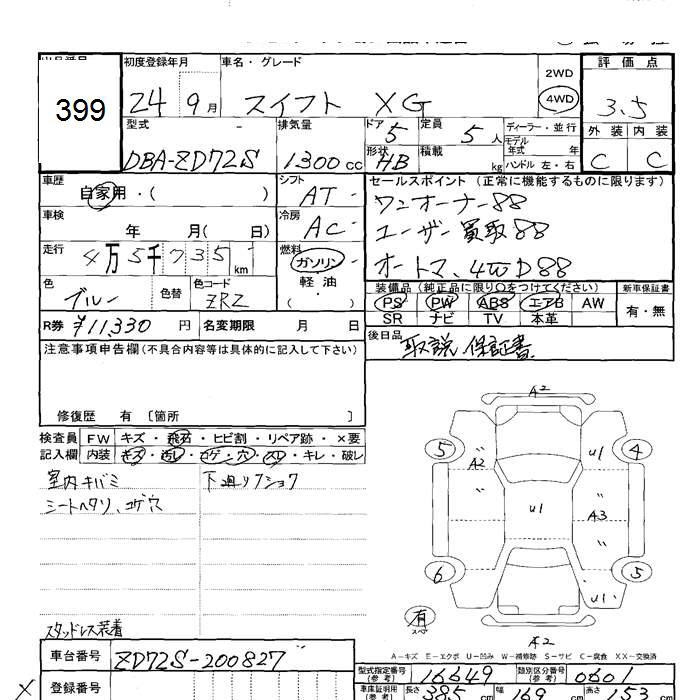 399
初度登録年月 車名・グレード 2WD 評価点
24 9月 スイフト XG 4WD 3.5
型式 排気量 ドア 5 定員 5人 ディーラー・並行 外装 内装
モデル年式 年
DBA-ZD72S 1300cc 形状 HB 積載 kg ハンドル 左・右 C C
車歴 自家用・( ) シフト AT セールスポイント (正常に機能するものに限ります)
ワンオーナー88
車検 年 月( 日) 冷房 AC ユーザー買取88
走行 4万5千735km 燃料 ガソリン オートマ、4WD88
軽油・( )
色 ブルー 色替 色コード ZRZ 装備品(純正品に限り○をつけてください) 新車保証書
PS PW ABS エアB AW 有・無
SR ナビ TV 本革
R券 ¥11,330円 名変期限 月 日
後日品 取説 保証書
注意事項申告欄(不具合内容等は具体的に記入して下さい)
修復歴 有 〔箇所 〕
検査員 FW キズ・飛石・ヒビ割・リペア跡・×要
記入欄 内装 キズ・汚レ・コゲ・穴・スレ・キレ・破レ
室内キバミ 下廻リフショク
シートヘタリ、コゲ穴
スタッドレス装着
A2
5 A2 U1 4
U1 A3
6 5
U1
有
スペア
A2
A-キズ E-エクボ U-凹み W-補修跡 S-サビ C-腐食 XX-交換済
車台番号 ZD72S-200827 型式指定番号(参考) 16649 類別区分番号(参考) 0601
X 登録番号 車庫証明用(参考) 長さ 385cm 幅 169cm 高さ 153cm